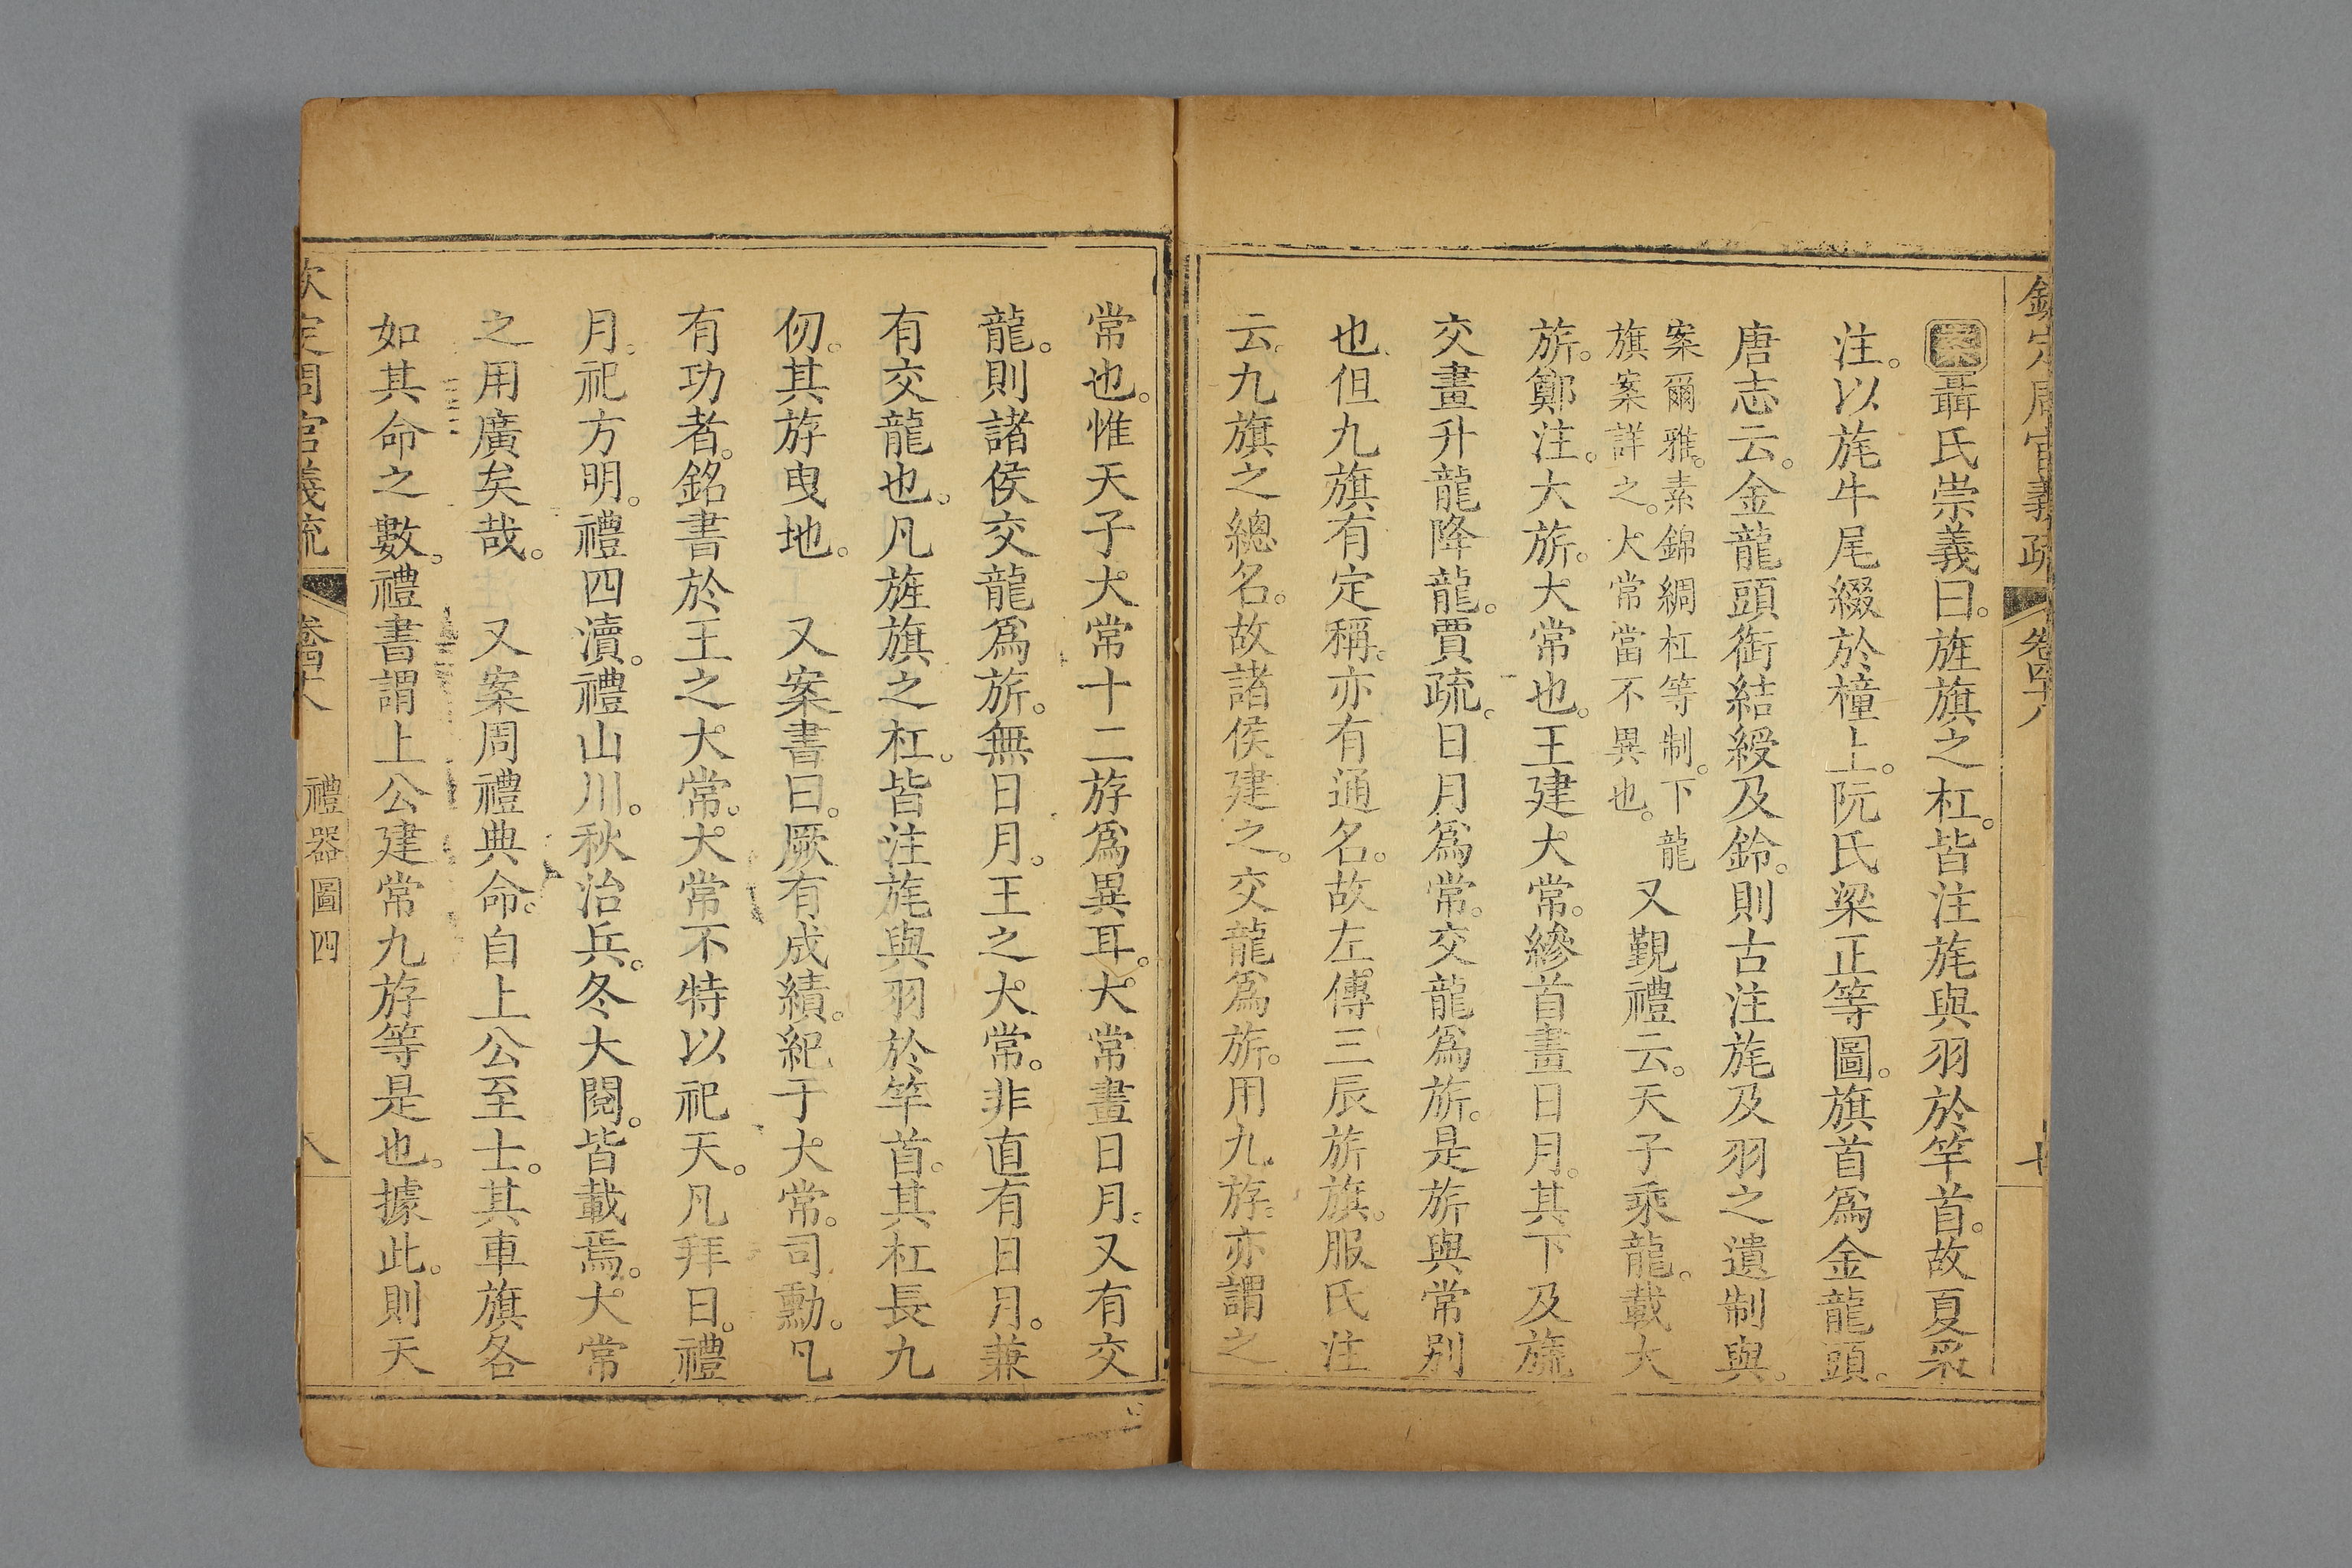 欽定周官義疏 卷四十八
案聶氏崇義曰。旌旗之杠。皆注旄與羽於竿首。故夏采
注。以旄牛尾綴於橦上。阮氏梁正等圖。旗首爲金龍頭。
唐志云。金龍頭銜結綬及鈴。則古注旄及羽之遺制與。
案爾雅。素錦綢杠等制。下龍
旗案詳之。大常當不異也。
又覲禮云。天子乘龍。載大
旂。鄭注。大旂。大常也。王建大常。縿首畫日月。其下及旒
交畫升龍降龍。賈疏。日月爲常。交龍爲旂。是旂與常別
也。但九旗有定稱。亦有通名。故左傳三辰旂旗。服氏注
云。九旗之總名。故諸侯建之。交龍爲旂。用九斿。亦謂之
常也。惟天子大常十二斿爲異耳。大常畫日月。又有交
龍。則諸侯交龍爲旂。無日月。王之大常。非直有日月。兼
有交龍也。凡旌旗之杠。皆注旄與羽於竿首。其杠長九
仞。其斿曳地。 又案書曰。厥有成績。紀于大常。司勳。凡
有功者。銘書於王之大常。大常不特以祀天。凡拜日。禮
月。祀方明。禮四瀆。禮山川。秋治兵。冬大閱。皆載焉。大常
之用廣矣哉。 又案周禮典命。自上公至士。其車旗各
如其命之數。禮書謂上公建常九斿等是也。據此。則天
欽定周官義疏 卷四十八 禮器圖四 八